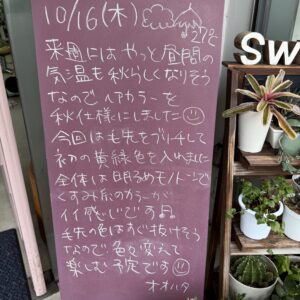 10/16(木) 27℃
来週にはやっと昼間の
気温も秋らしくなりそう
なので ヘアカラーを
秋仕様にしました
今回は毛先をブリーチして
初の黄緑色を入れました
全体は明るめモノトーンで
くすみ系のカラーが
イイ感じです♫
毛先の色はすぐ抜けそう
なので 色々変えて
楽しむ予定です
オオハタ
SW